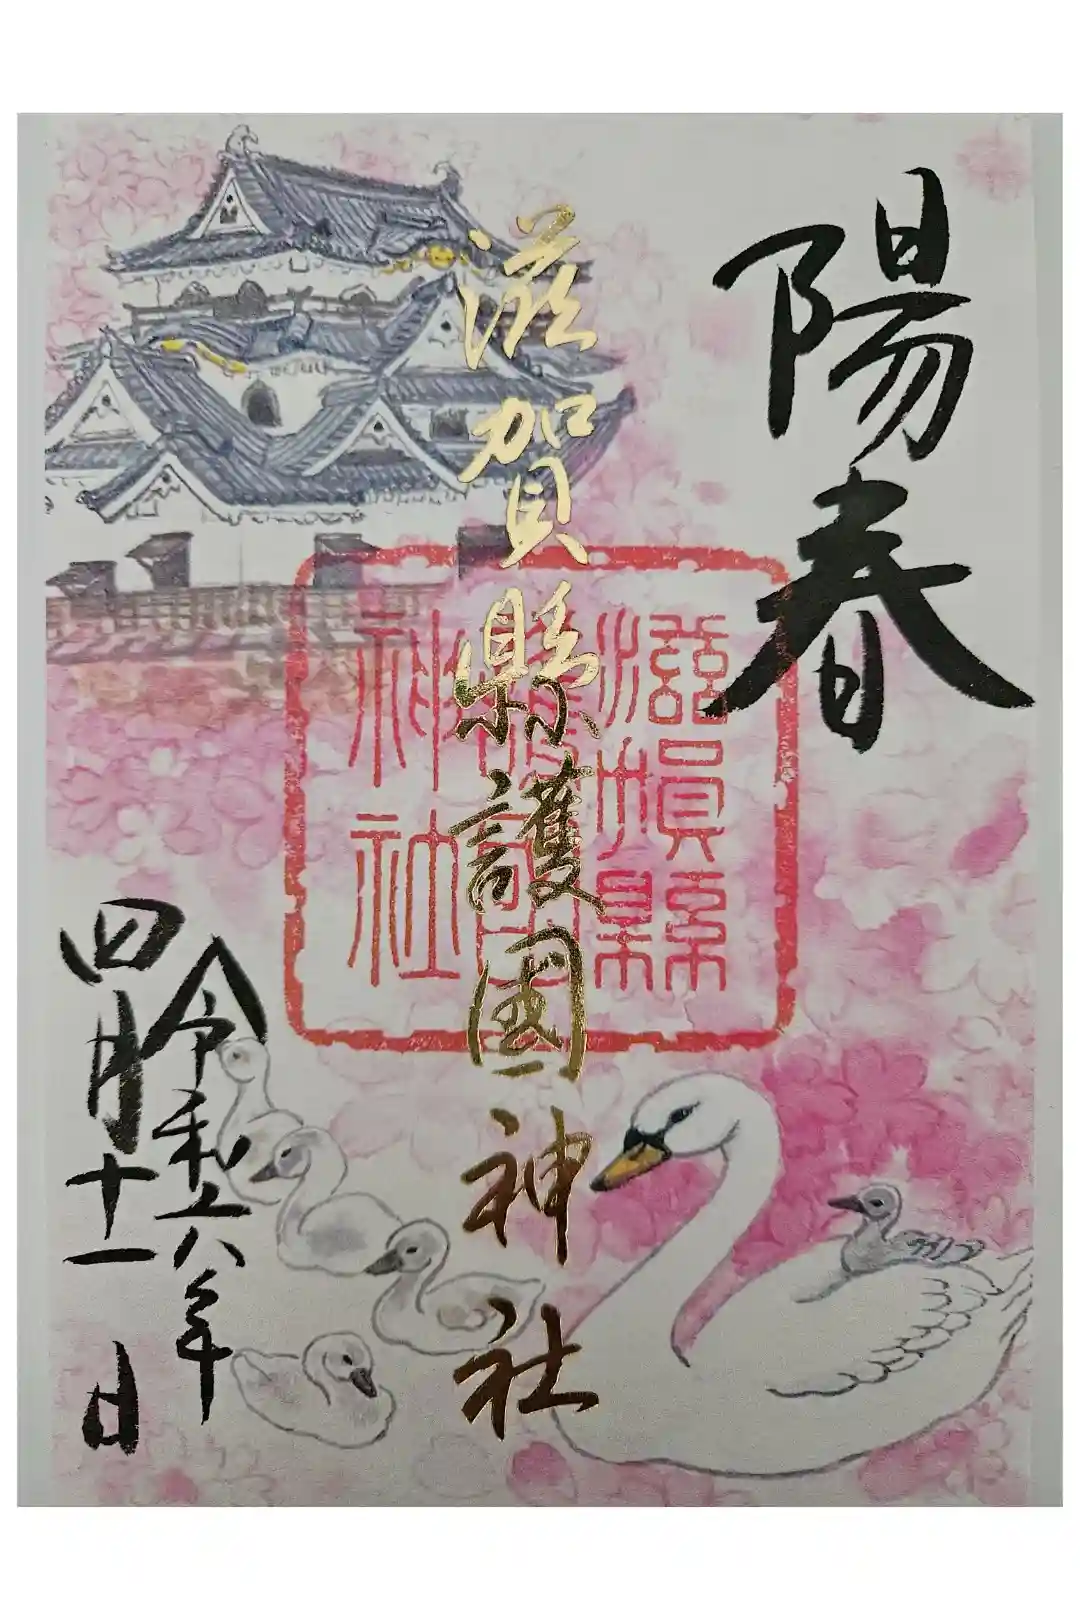 陽春
滋賀縣護國神社
滋賀縣
護國
神社
令和六年
四月十一日